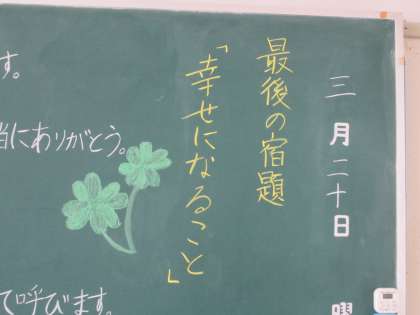 三月二十日
最後の宿題
「幸せになること」
す。
当にありがとう。
て呼びます。